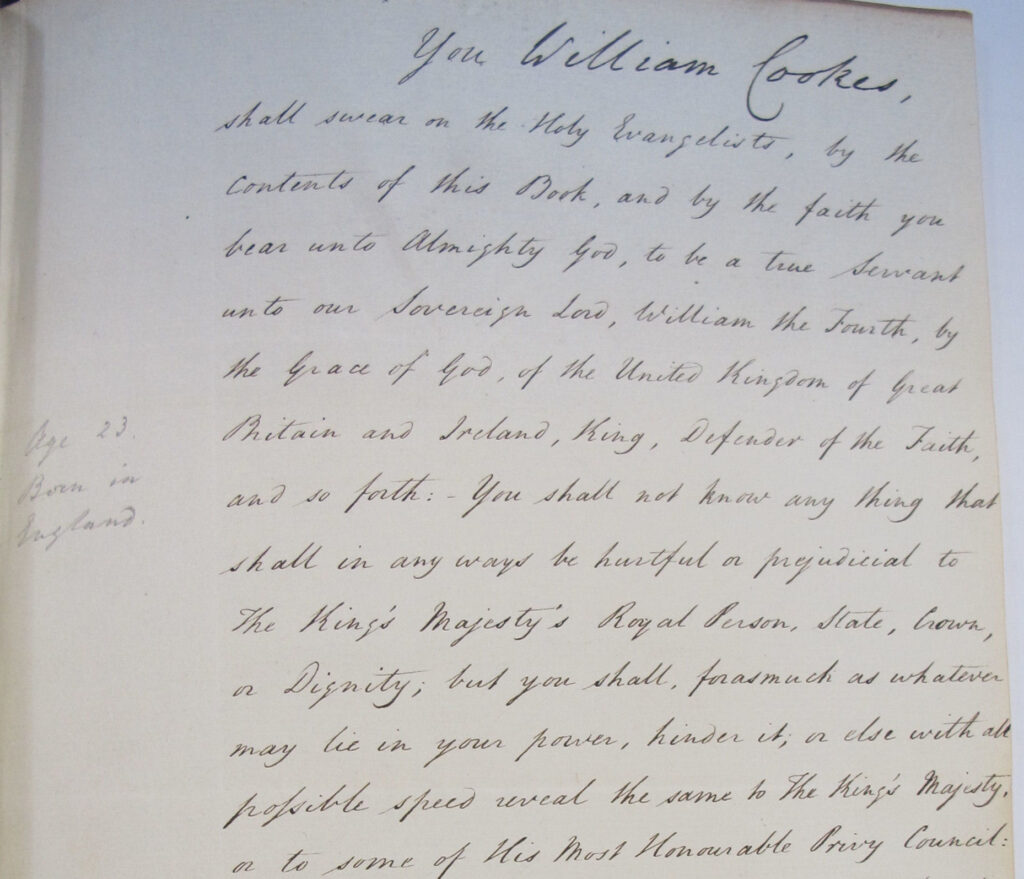 You William Cookes,
shall swear on the Holy Evangelists, by the
contents of this Book, and by the faith you
bear unto Almighty God, to be a true Servant
unto our Sovereign Lord, William the Fourth, by
the Grace of God, of the United Kingdom of Great
Britain and Ireland, King, Defender of the Faith,
and so forth: - You shall not know any thing that
shall in any ways be hurtful or prejudicial to
The King's Majesty's Royal Person, State, Crown,
or Dignity; but you shall, forasmuch as whatever
may lie in your power, hinder it; or else with all
poſsible speed reveal the same to The King's Majesty,
or to some of His Most Honourable Privy Council:
Age 23.
Born in
England.